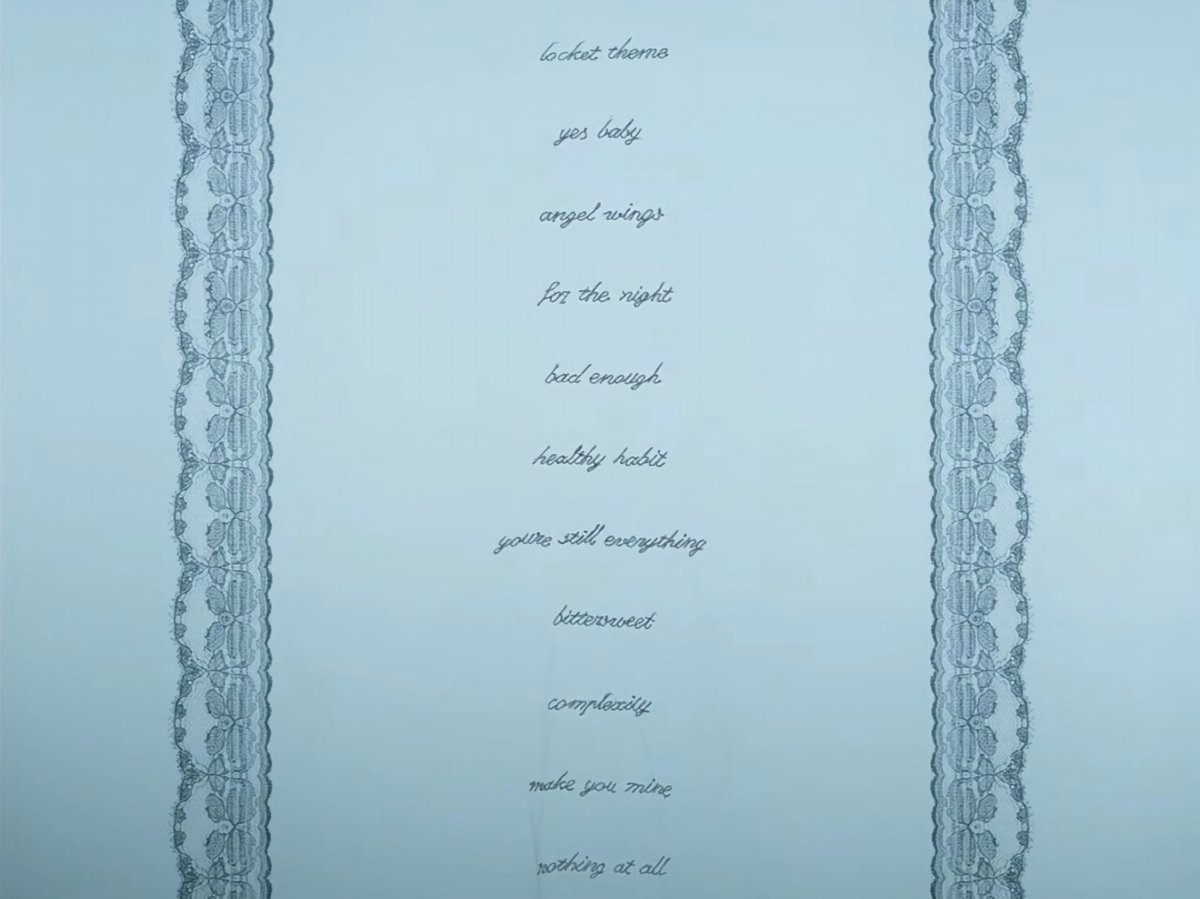 locket theme
yes baby
angel wings
for the night
bad enough
healthy habit
you're still everything
bittersweet
complexity
make you mine
nothing at all